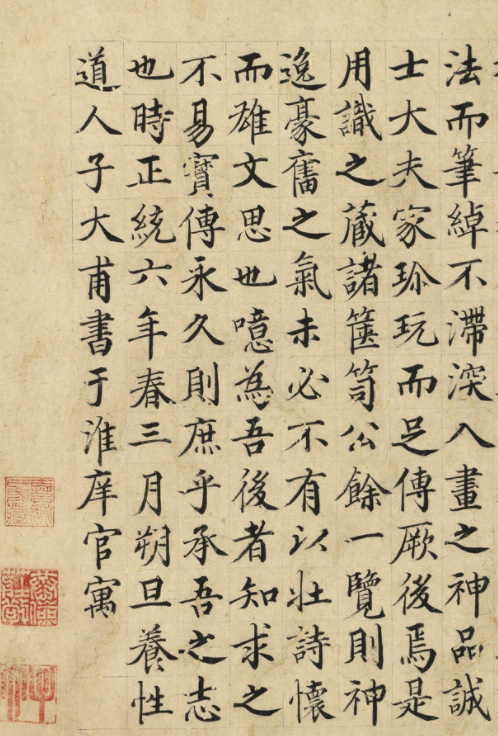 法而筆綽不滯深入畫之神品誠
士大夫家珎玩而足傳厥後焉是
用識之藏諸篋笥公餘一覽則神
逸豪奮之氣未必不有以壯詩懷
而雄文思也噫為吾後者知求之
不易寶傳永久則庶乎承吾之志
也時正統六年春三月朔旦養性
道人子大甫書于淮庠官寓